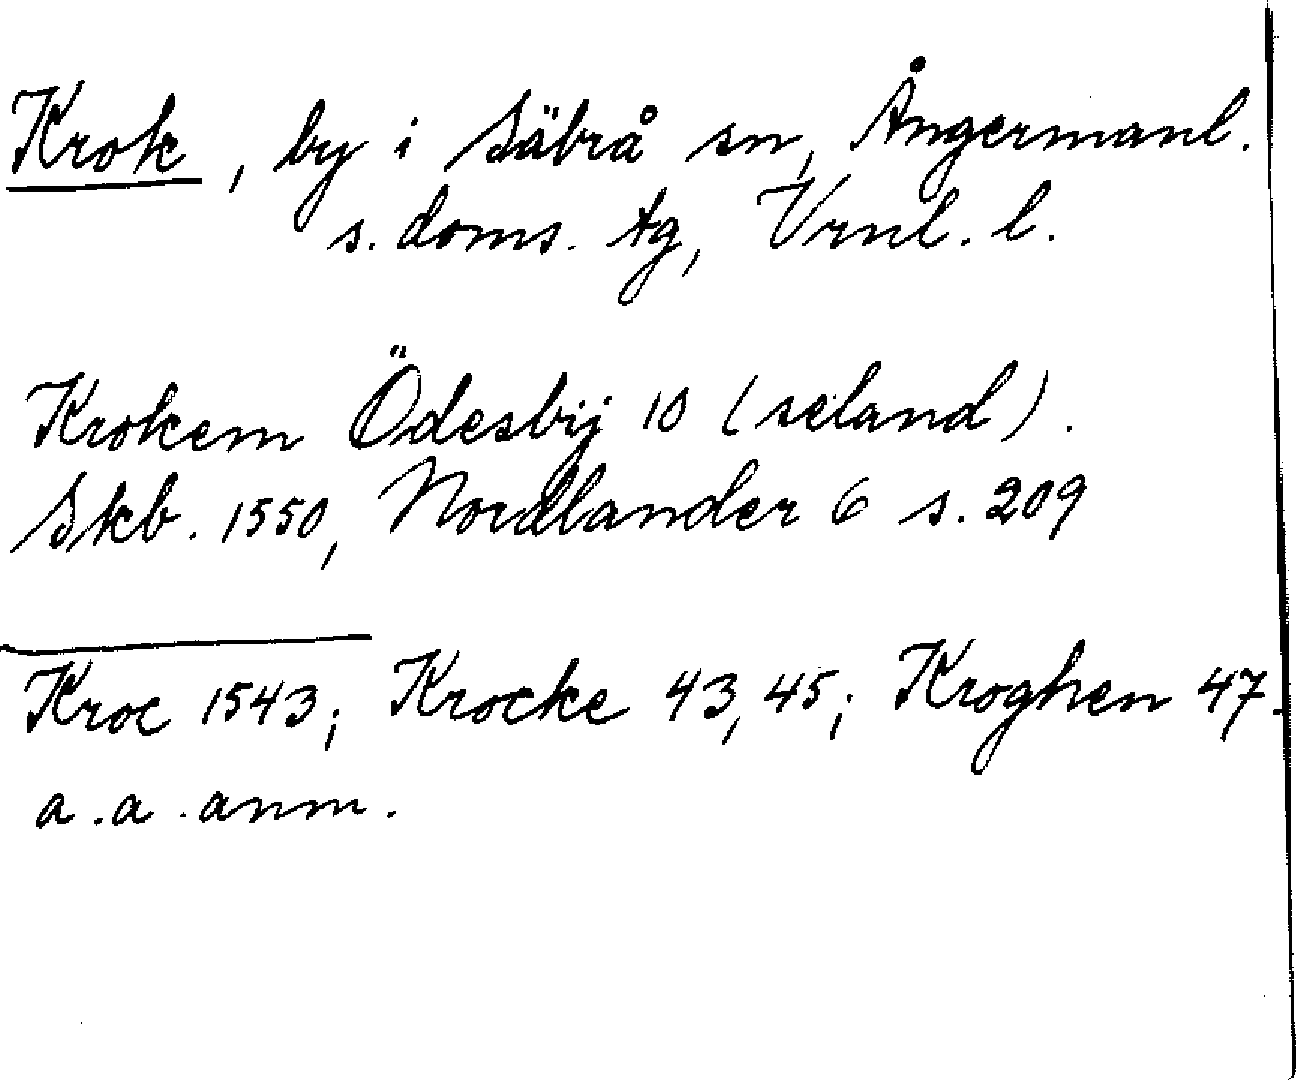 Krok, by i Säbrå sn, Ångermanl.
s. doms. tg, Vrnl. l.
Krokem Ödesbÿ 10 (seland).
Skb. 1550, Nordlander 6 s. 209
Kroc 1543; Krocke 43, 45; Kroghen 47.
a. a. anm.